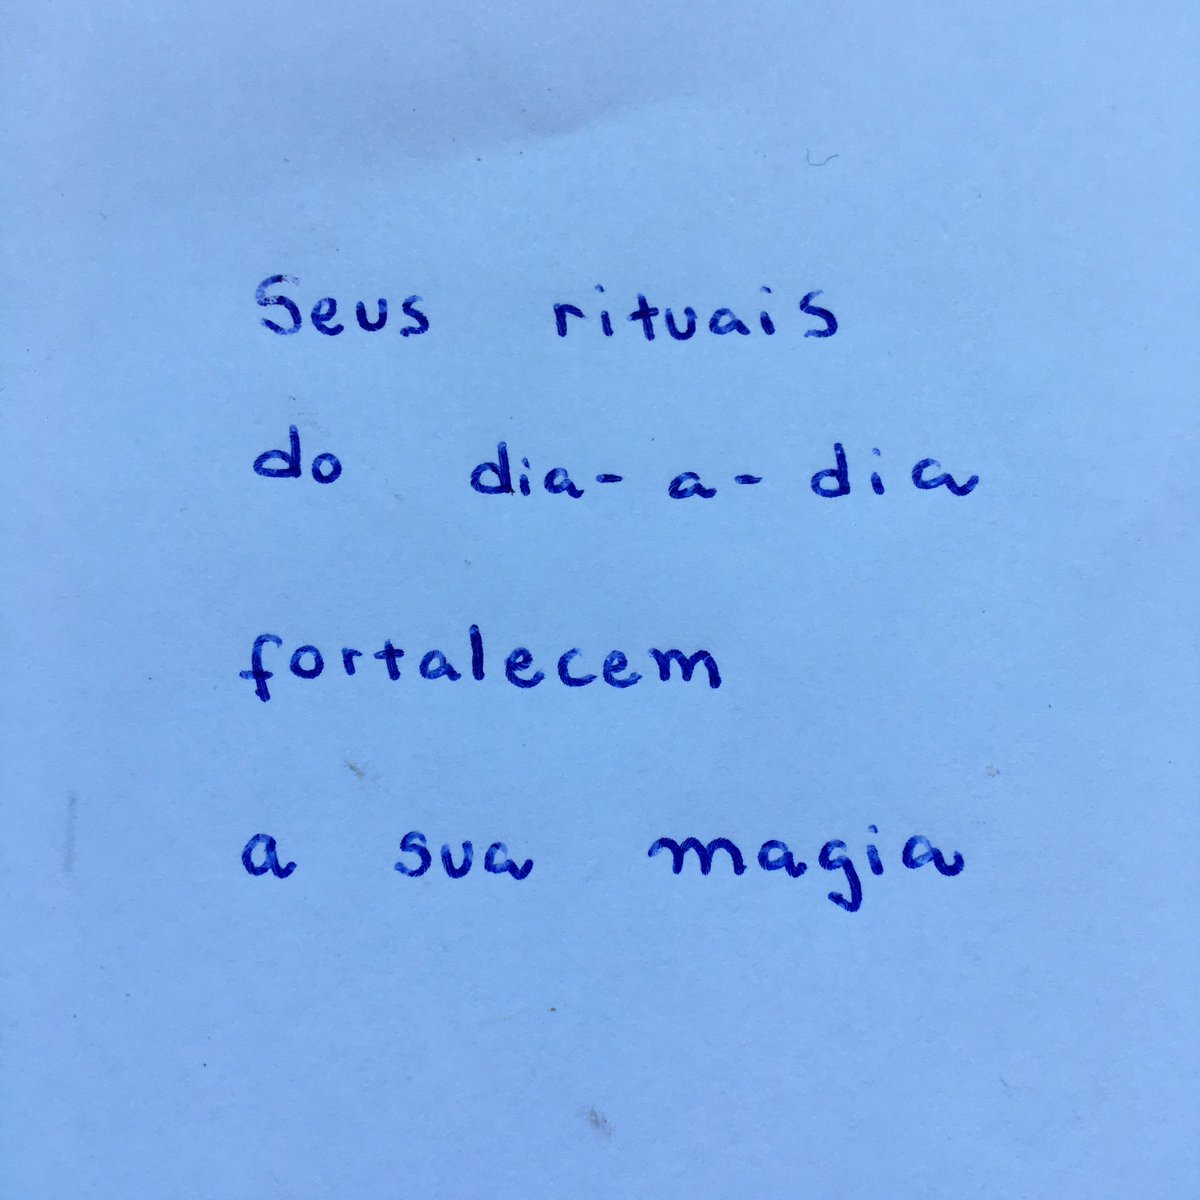 Seus rituais
do dia-a-dia
fortalecem
a sua magia